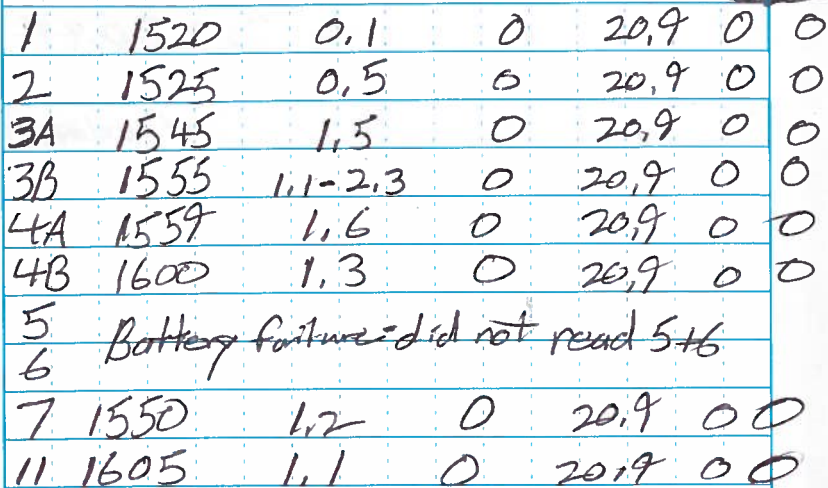 1 1520 0.1 0 20.9 0 0
2 1525 0.5 0 20.9 0 0
3A 1545 1.5 0 20.9 0 0
3B 1555 1.1-2.3 0 20.9 0 0
4A 1559 1.6 0 20.9 0 0
4B 1600 1.3 0 20.9 0 0
5
Battery failure - did not read 5+6
6
7 1550 1.2 0 20.9 0 0
11 1605 1.1 0 20.9 0 0